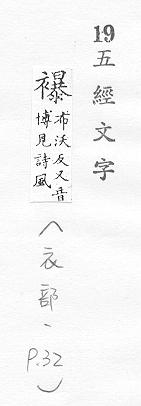 19五經文字
襮布沃反又音
博見詩風
(衣部、P.32)